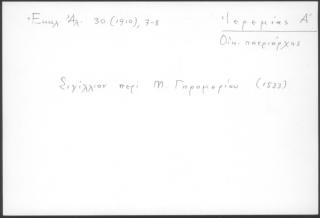 Ἐκκλ Ἀλ. 30 (1910), 7-8
Ἱερεμίας Α΄
Οἰκ. πατριάρχης
Σιγίλλιον περὶ Μ. Γηρομερίου (1533)